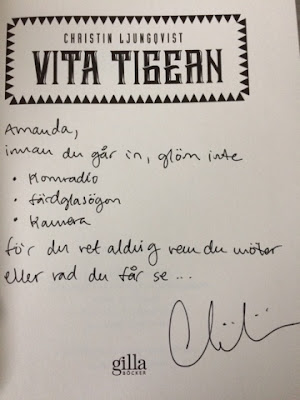 CHRISTIN LJUNGQVIST
VITA TIGERN
Amanda,
innan du går in, glöm inte
• Komradio
• färdglasögon
• Kamera
för du vet aldrig vem du möter
eller vad du får se ...
gilla
BÖCKER